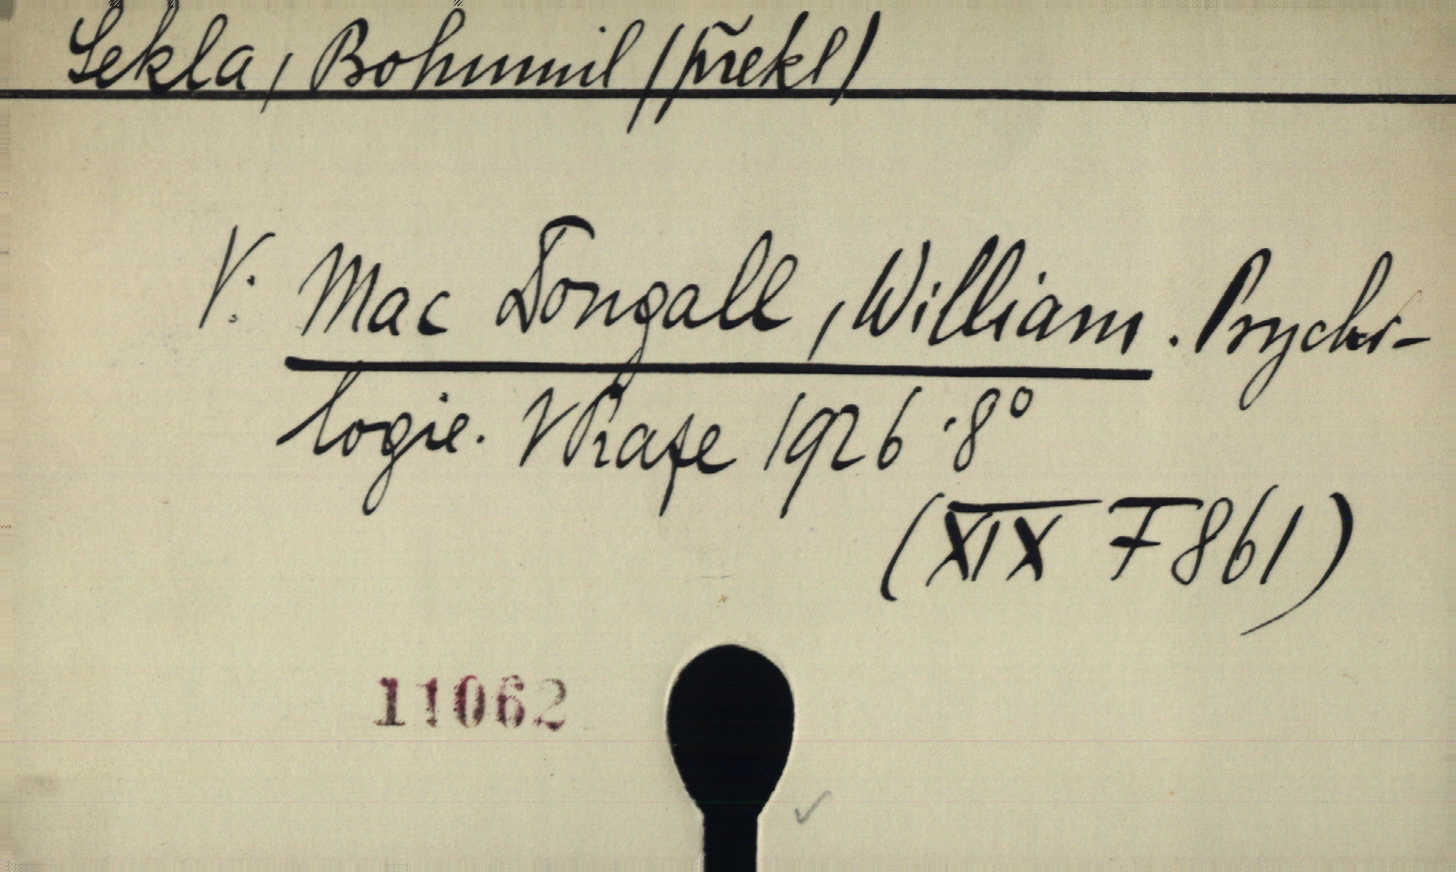 Sekla, Bohumil (překl)
V: Mac Dougall, William. Psycho-
logie. V Praze 1926. 8°
(XIX F 861)
11062